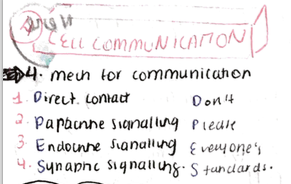 CELL COMMUNICATION
4. mech for communication
1. Direct. contact Don't
2. Papacrine signalling Please
3. Endocrine signalling Everyone's
4. Synaptic signalling. Standards.